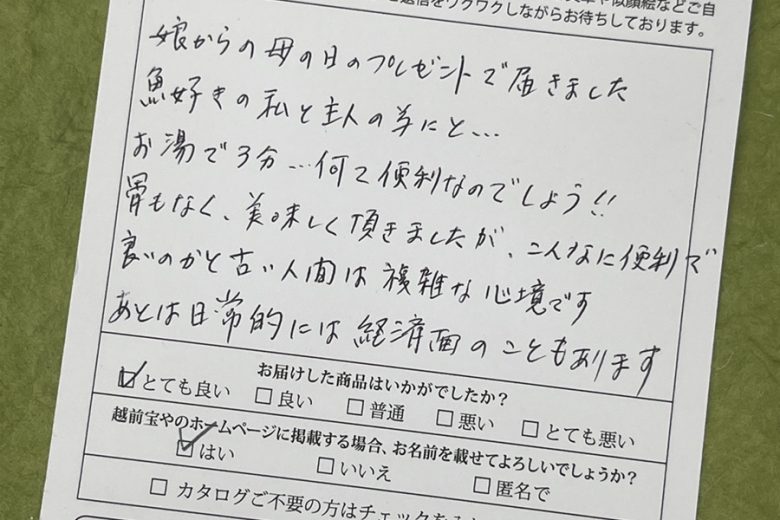 文章や似顔絵などご自
ご返信をワクワクしながらお待ちしております。
娘からの母の日のプレゼントで届きました
魚好きの私と主人の為にと…
お湯で3分…何て便利なのでしょう!!
骨もなく、美味しく頂きましたが、こんなに便利で
良いのかと古い人間は複雑な心境です
あとは日常的には経済面のこともあります
お届けした商品はいかがでしたか?
☑とても良い □良い □普通 □悪い □とても悪い
越前宝やのホームページに掲載する場合、お名前を載せてよろしいでしょうか?
☑はい □いいえ □匿名で
□ カタログご不要の方はチェックを